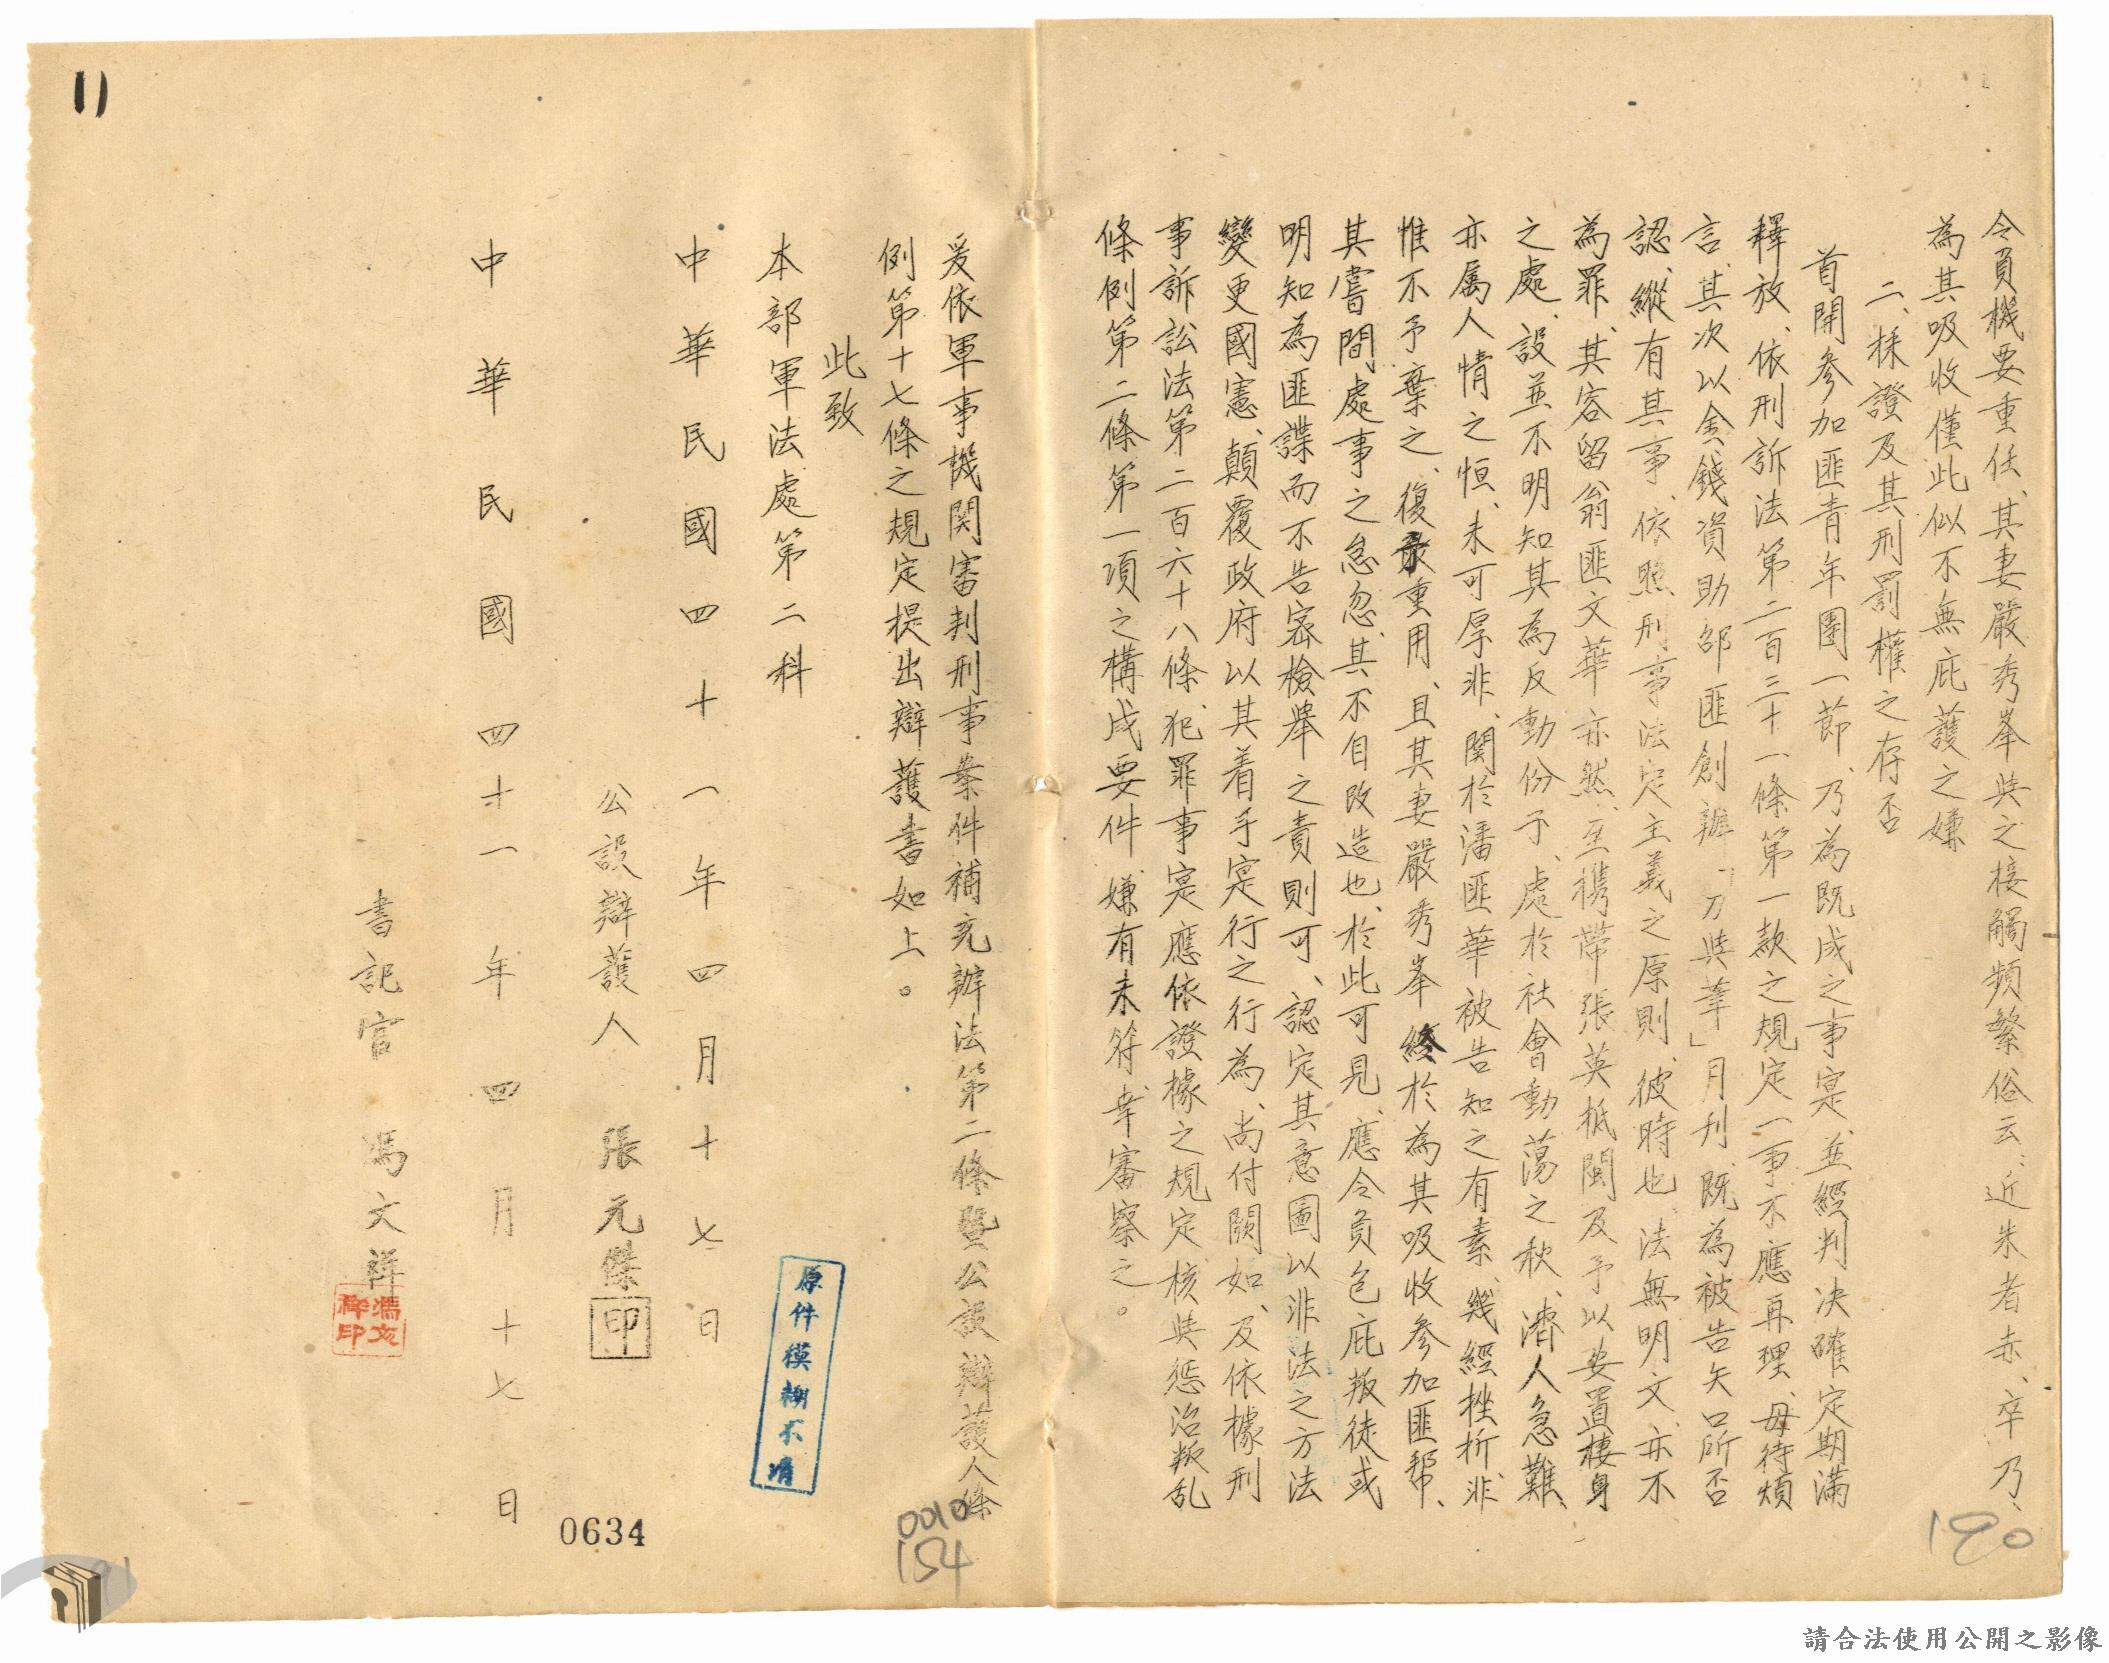 令員機要重任、其妻嚴秀峯與之接觸頻繁俗云、近朱者赤、卒乃、
為其吸收僅此似不無庇護之嫌
二、採證及其刑罰權之存否
首開參加匪青年團一節、乃為既成之事實、並經判決確定期滿
釋放、依刑訴法第二百三十一條第一款之規定一事不應再理、毋待煩
言、其次以金錢資助邵匪創辦「刀與筆」月刊既為被告矢口所否
認、縱有其事、依照刑事法定主義之原則、彼時也、法無明文、亦不
為罪、其容留翁匪文華亦然、至携帶張英抵閩及予以安置棲身
之處、設並不明知其為反動份子、處於社會動蕩之秋、濟人急難、
亦屬人情之恒、未可厚非、関於潘匪華被告知之有素、幾經挫折非、
惟不予棄之、復求重用、且其妻嚴秀峯終於為其吸收參加匪幫、
其嘗間處事之怠忽、其不自改造也、於此可見、應令負包庇叛徒或
明知為匪諜而不告密檢舉之責則可、認定其意圖以非法之方法
變更國憲、顛覆政府以其着手实行之行為、尚付闕如、及依據刑
事訴訟法第二百六十八條、犯罪事実應依證據之規定核與惩治叛乱
條例第二條第一項之構成要件嫌有未符、幸審察之。
爰依軍事機関審判刑事案件補充辦法第二條暨公設辯護人條
例第十七條之規定提出辯護書如上。
此致
本部軍法處第二科
中華民國四十一年四月十七日
公設辯護人 張元傑 印
中華民國四十一年四月十七日
書記官 馮文祥
馮文祥印
原件模糊不清
11
0634
0010
154
190
91
請合法使用公開之影像